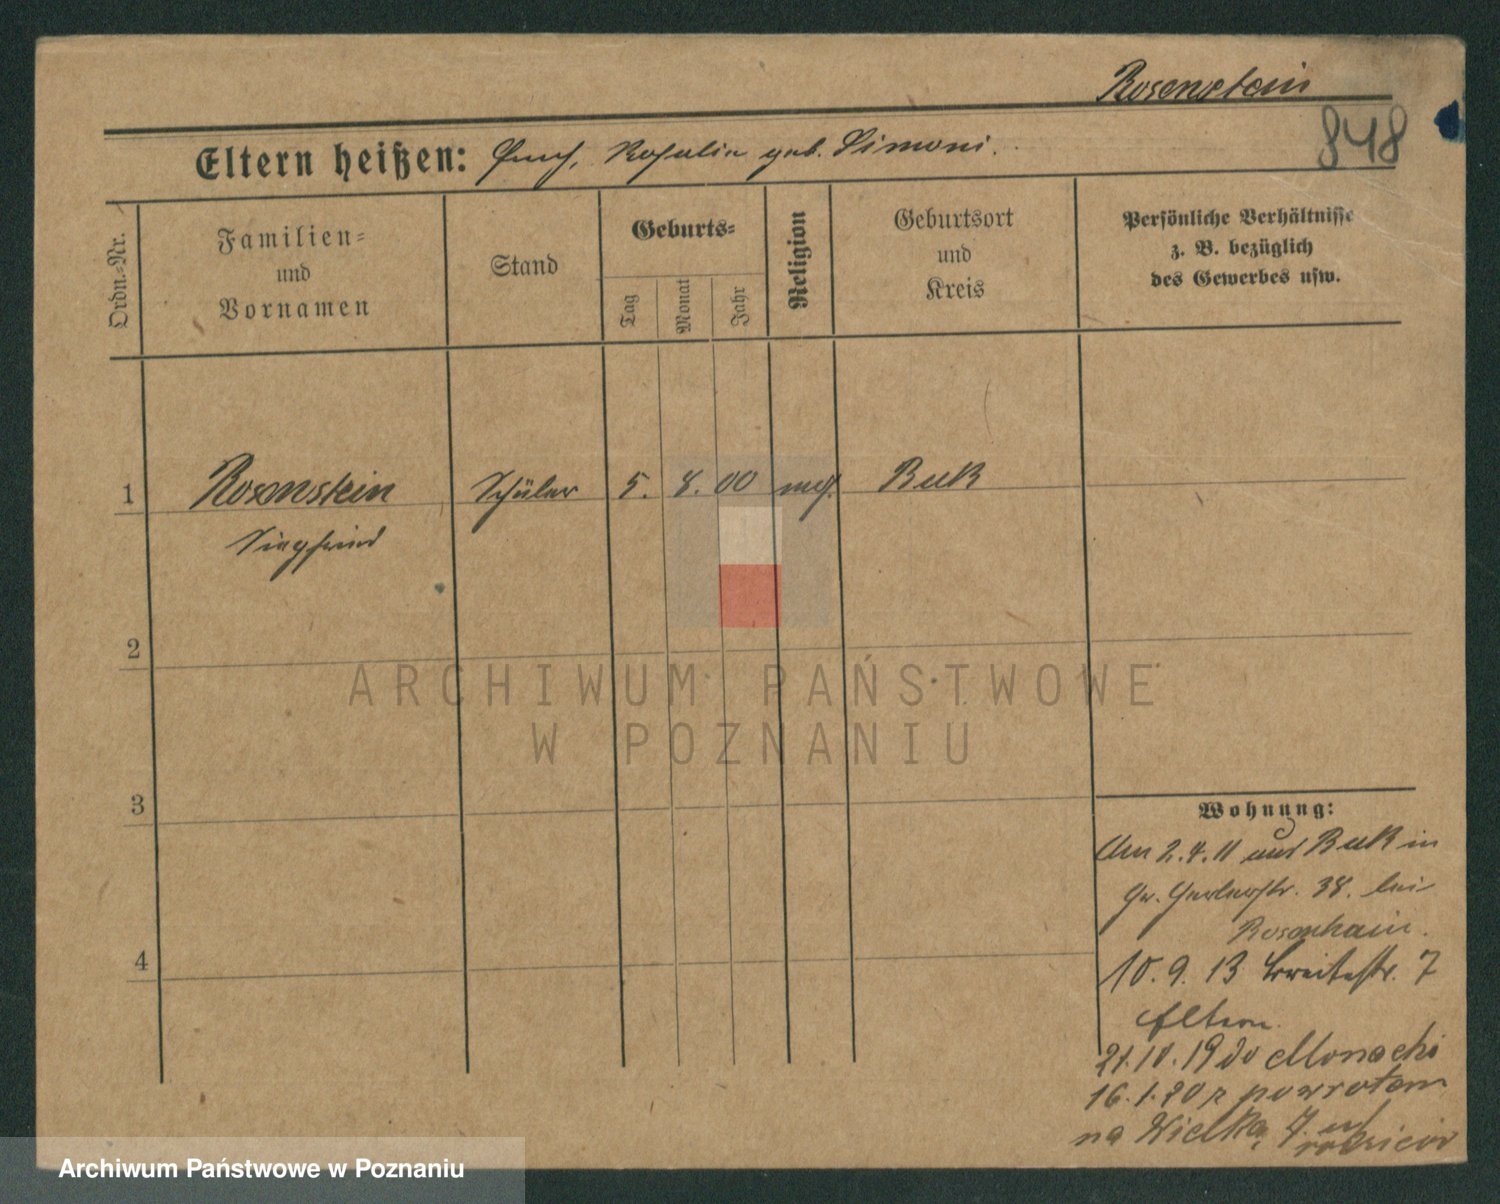 Rosenstein
848
Eltern heißen: Rosalie geb. Simoni.
Ordn.-Nr.
Familien-
und
Vornamen
Stand
Geburts-
Tag
Monat
Jahr
Religion
Geburtsort
und
Kreis
Persönliche Verhältnisse
z. B. bezüglich
des Gewerbes usw.
1 Rosenstein Schüler 5. 8. 00 mos. Buk
Siegfried
2
3
4
Wohnung:
Am 2.4.11 aus Buk in
Gr. Gerberstr. 38. bei
Rosenhain.
10. 9. 13 Breitestr. 7
Eltern
21.10.19 do Monachi
16.1.20 z powrotem
na Wielką 7.
ARCHIWUM PAŃSTWOWE
W POZNANIU
Archiwum Państwowe w Poznaniu